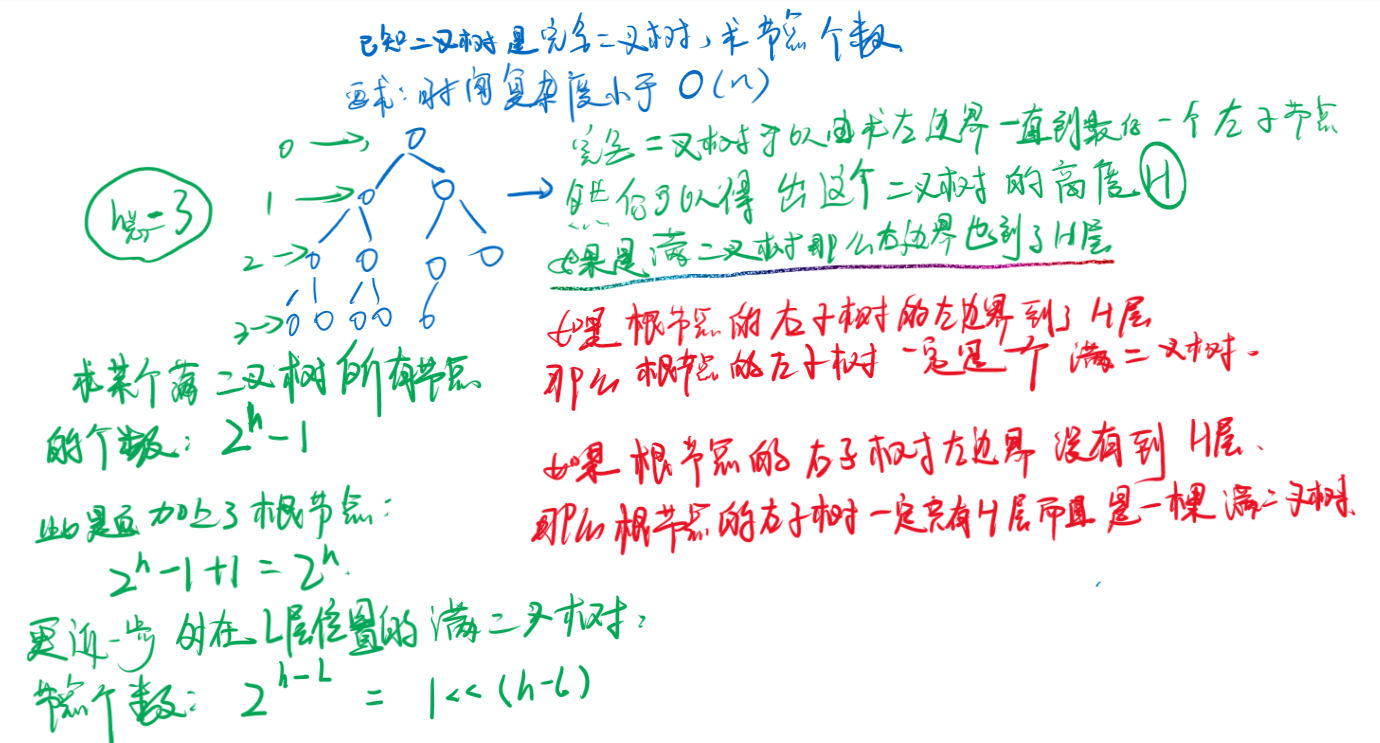 已知二叉树是完全二叉树，求节点个数
要求：时间复杂度小于 O(n)
0
1
2
3
h总=3
完全二叉树可以由求左边界一直到最后一个左子节点
然后可以得出这个二叉树的高度 H
如果是满二叉树那么右边界也到了H层
如果 根节点的右子树的左边界到了 H层
那么 根节点的左子树 一定是一个 满二叉树.
如果 根节点的 右子树左边界 没有到 H层、
那么根节点的右子树一定只有H层而且是一棵满二叉树.
求某个满二叉树所有节点
的个数：2^h-1
如果再加上了根节点：
2^h-1+1=2^h.
更进一步 对在L层位置的满二叉树：
节点个数：2^(h-L) = 1<<(h-L)